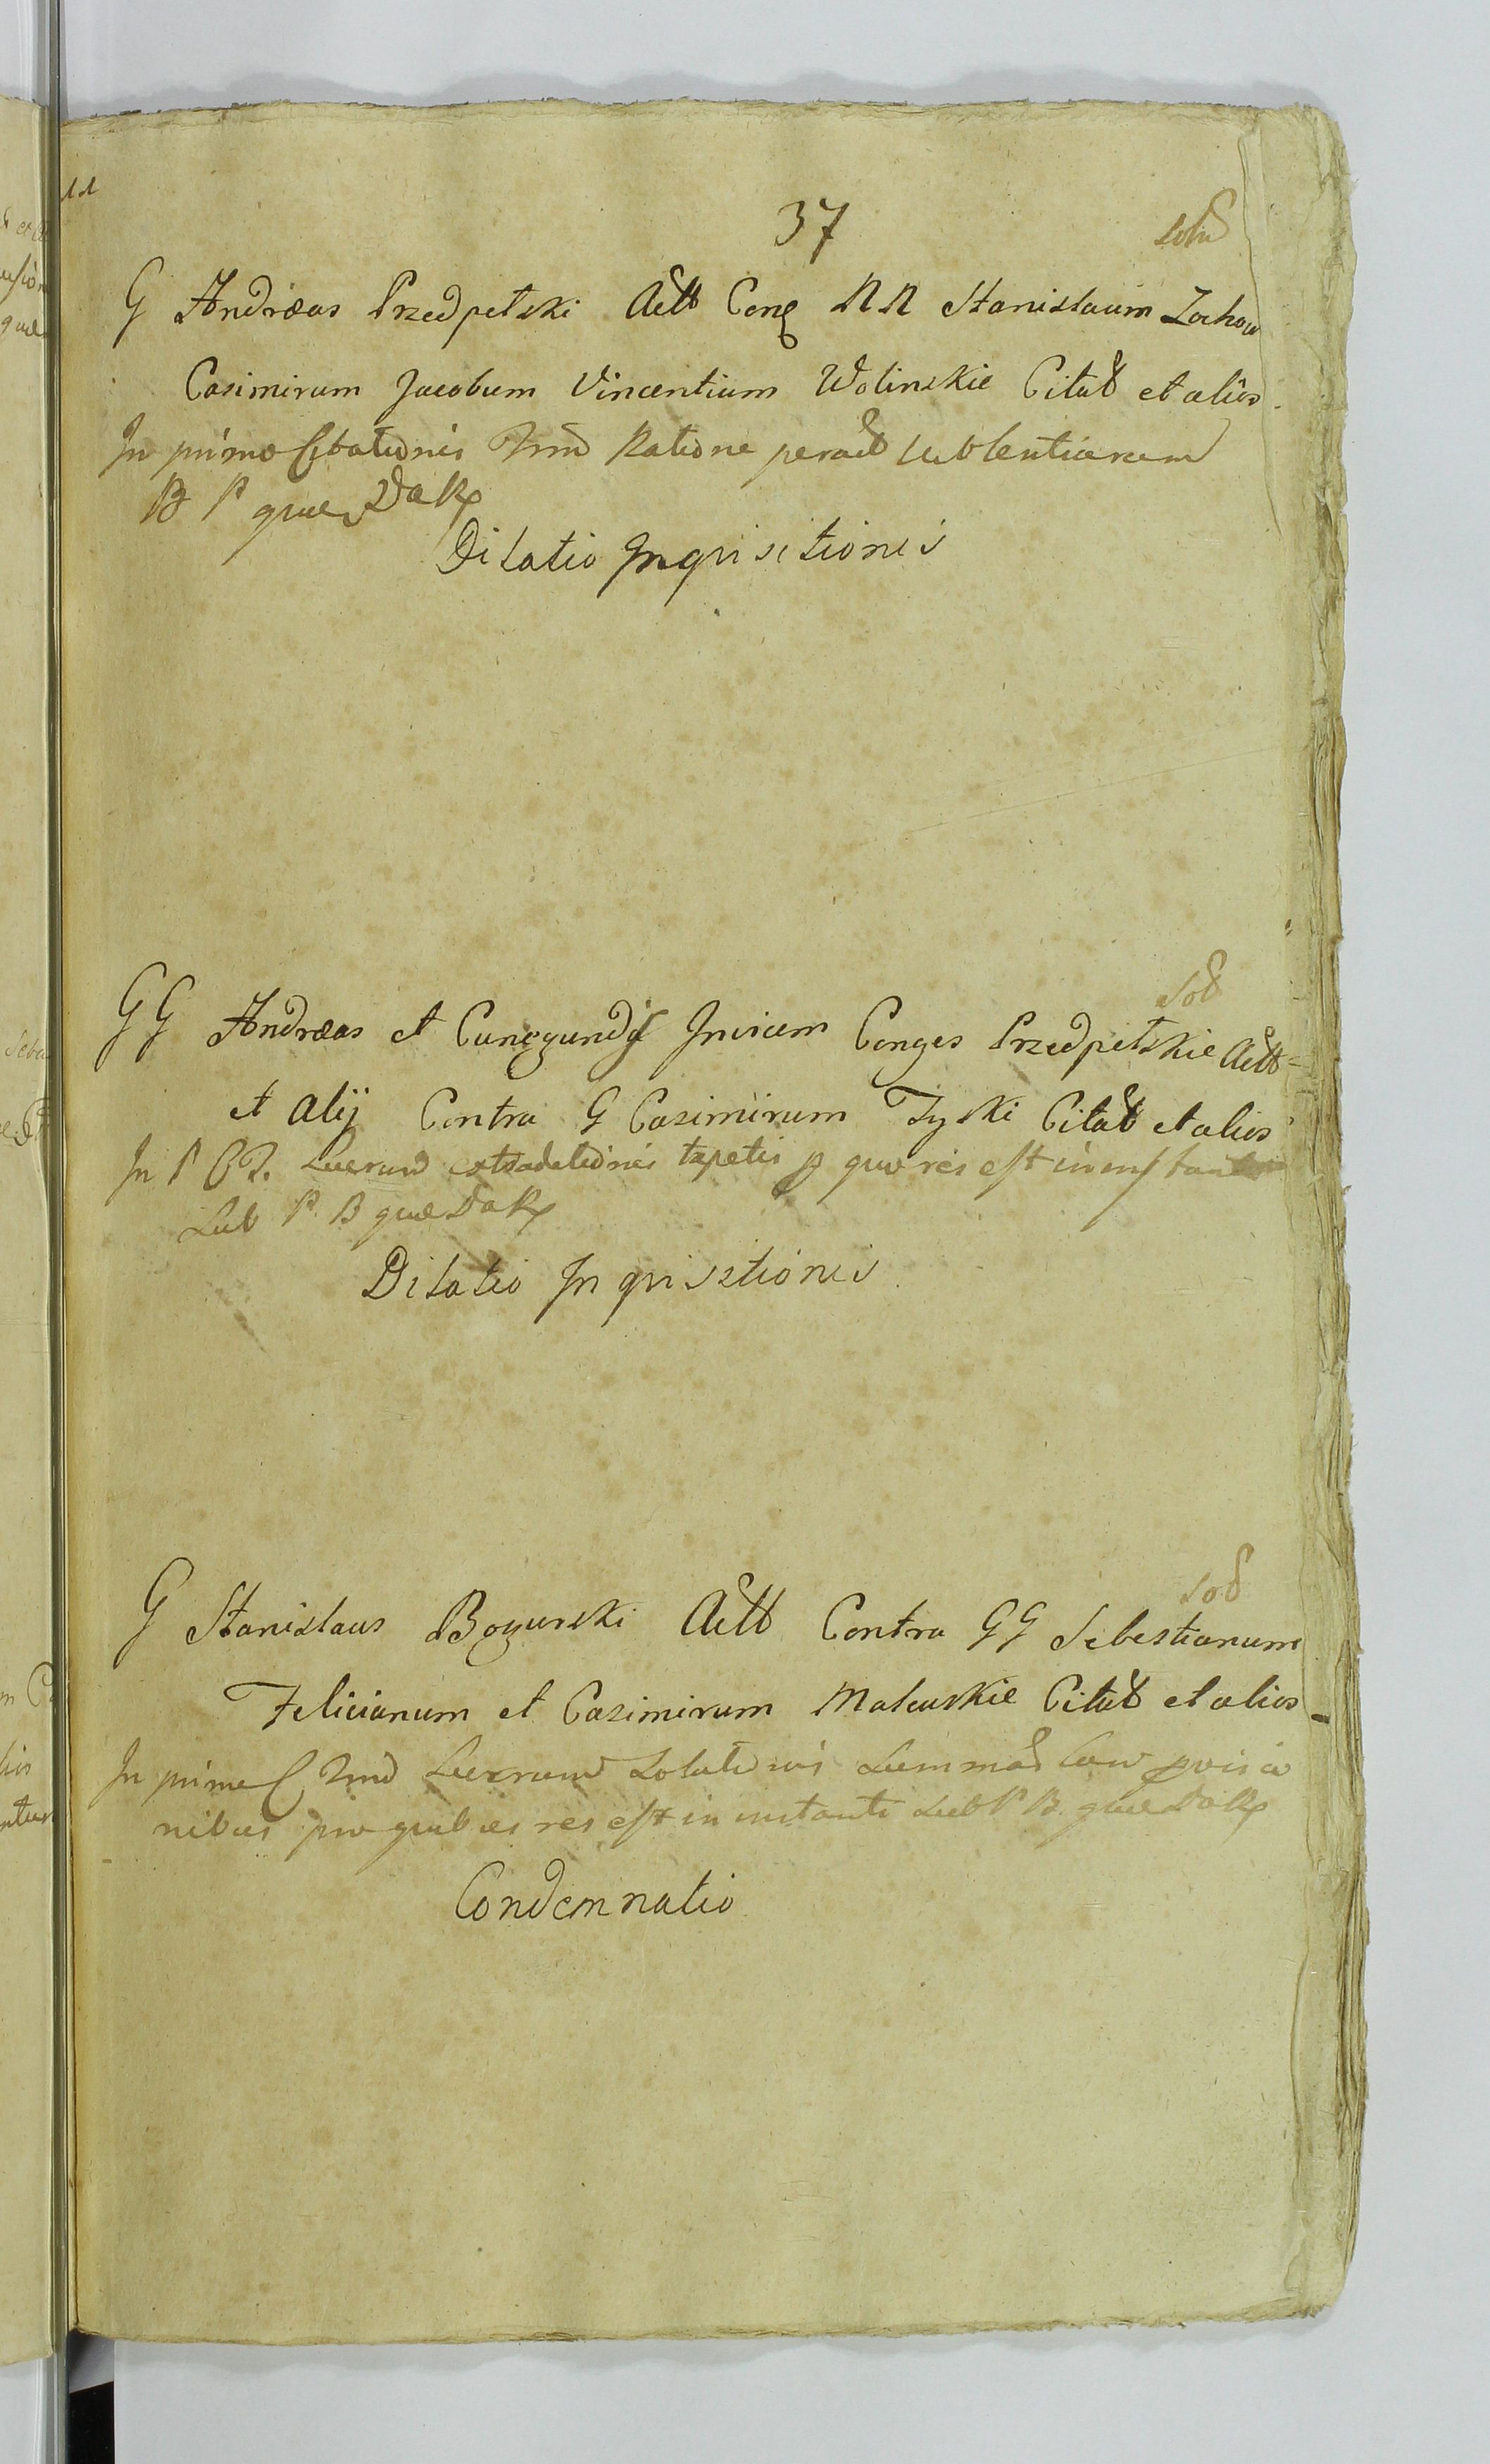 37
sold
G Andræas Przedpetski Actt Cong NN Stanislaum Zochow
Casimirum Jacobum Vincentium Wolinskie Citatt et alios
In primo Citationis Tmo Ratione peract
B P quæ DaRp
Dilatio Inquisitionis
sod
GG Andræas et Cunegundis Invicem Conges Przedpetskie Actt
et alij Contra G Casimirum Tyski Citatt et alios
In P C T. Luerum extradetionis tapetis p quo res est in instanti
sub P. B quæ DaRp
Dilatio Inquisitionis
sod
G Stanislaus Boguski Actt Contra GG Sebestianum
Felicianum et Casimirum Maleuskie Citatt et alios
In primo C Tmo Luerum Solutionis Summæ cum provisio
nibus pro quibus res est in instanti sub P B. quæ DaRp
Condemnatio